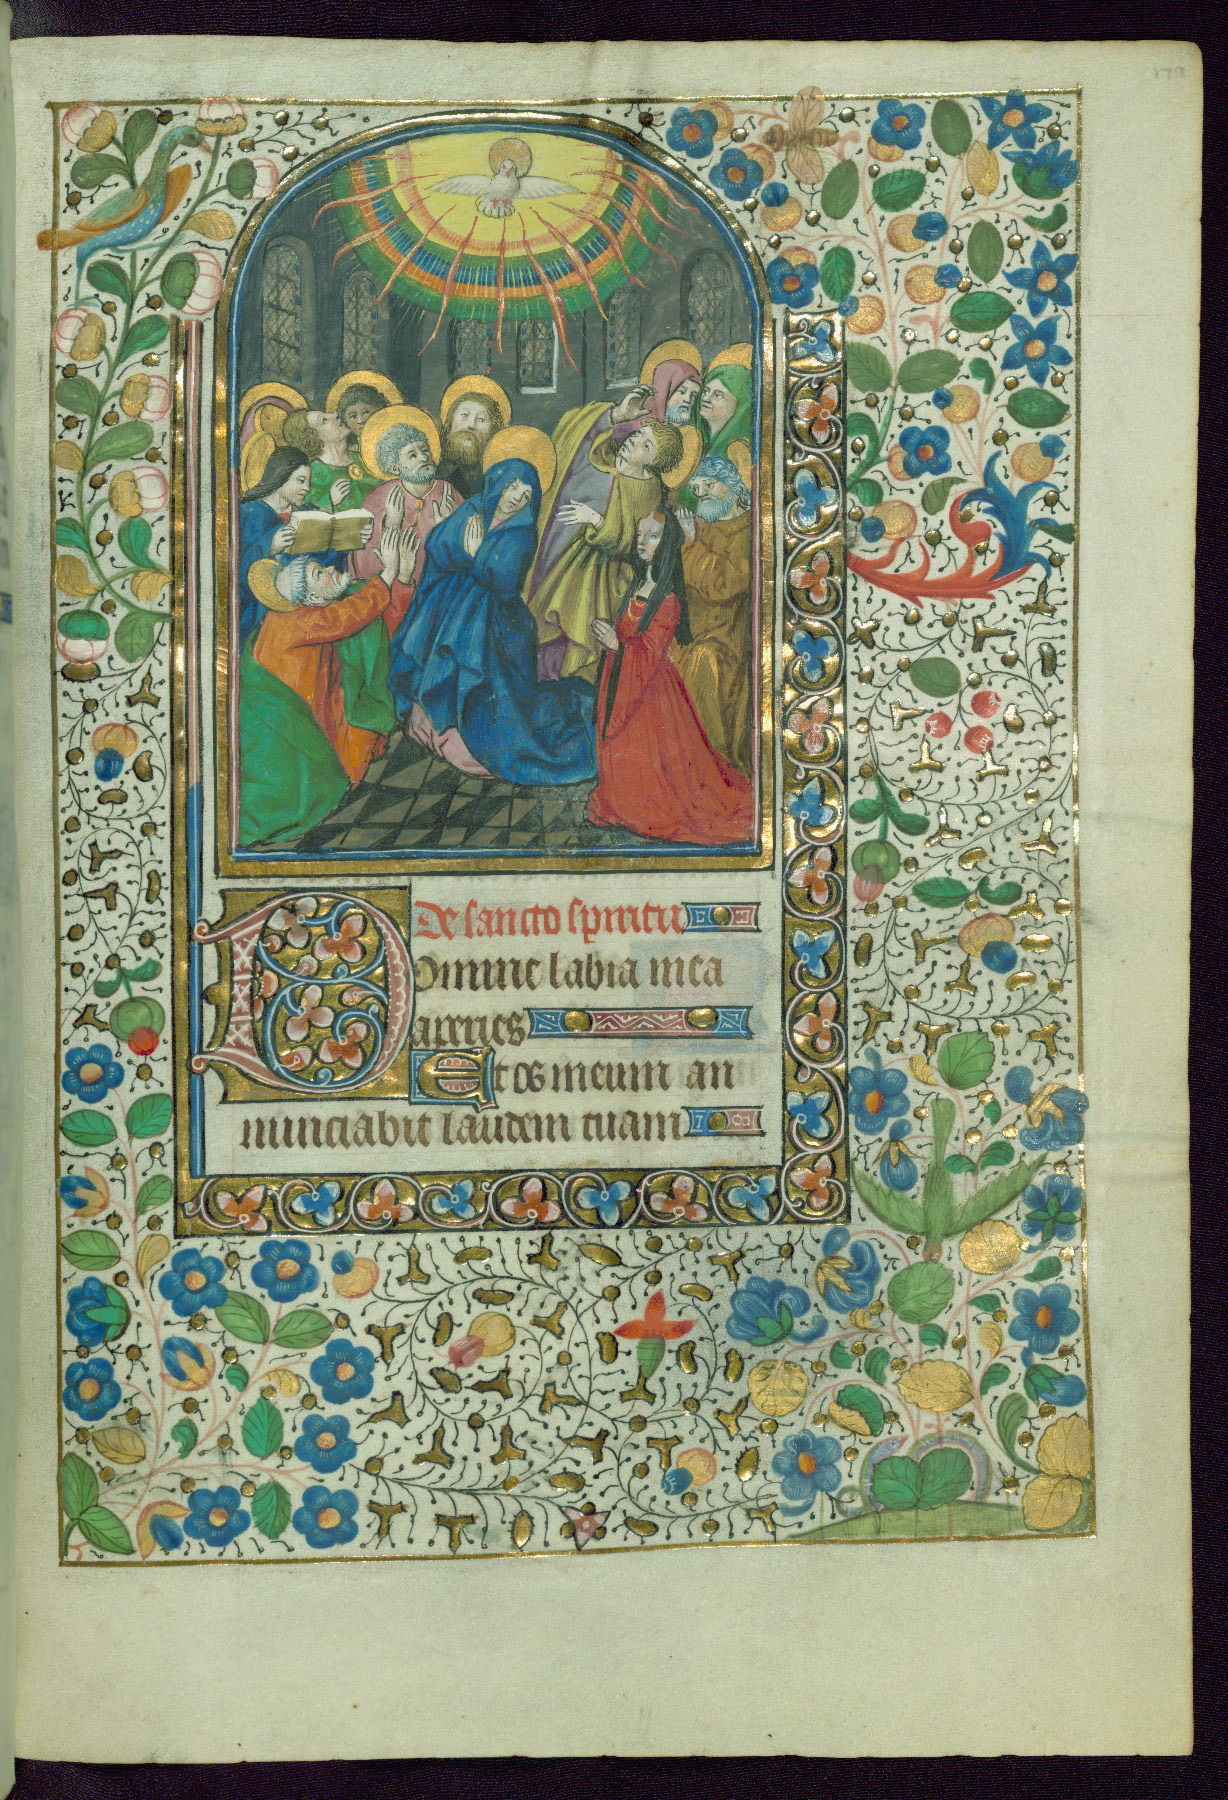 De sancto spiritu
Domine labia mea
aperies
Et os meum an
nunciabit laudem tuam